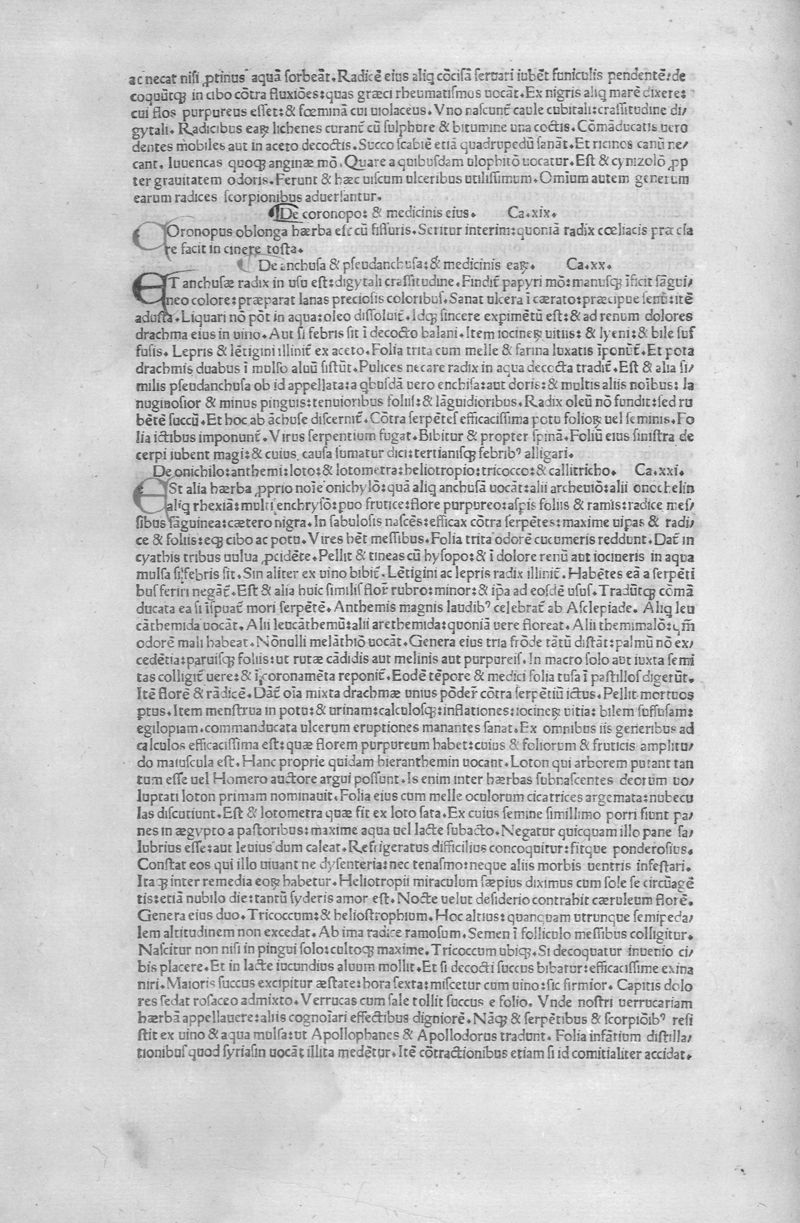 ac necat nisi ꝓtinus aquā sorbeāt. Radicē eius aliq cōcisā seruari iubēt funiculis pendentē: de
coquūtqꝫ in cibo cōtra fluxiões: quas græci rheumatismos uocāt. Ex nigris aliq marē dixere:
cui flos purpureus esset: & fœminā cui uiolaceus. Vno nascunt̄ caule cubitali: crassitudine di/
gytali. Radicibus eaꝝ lichenes curant̄ cū sulphure & bitumine una coctis. Cōmāducatis uero
dentes mobiles aut in aceto decoctis. Succo scabiē etiā quadrupedū sanāt. Et ricinos canū ne/
cant. Iuuencas quoqꝫ anginæ mō. Quare a quibusdam ulophitō uocatur. Est & cynizolō ꝓp
ter grauitatem odoris. Ferunt & hæc uiscum ulceribus utilissimum. Omium autem generum
earum radices scorpionibus aduersantur.
De coronopo: & medicinis eius. Ca.xix.
COronopus oblonga hærba est cū fissuris. Seritur interim: quoniā radix cœliacis præ cla
re facit in cinere tosta.
De anchusa & pseudanchusa: & medicinis eaꝝ. Ca.xx.
ET anchusæ radix in usu est: digytali crassitudine. Findit̄ papyri mō: manusqꝫ ificit sāgui/
neo colore: præparat lanas preciosis coloribus. Sanat ulcera ī cærato: præcipue senū: itē
adusta. Liquari nō pōt in aqua: oleo dissoluit̄. Idqꝫ sincere expimētū est: & ad renum dolores
drachma eius in uino. Aut si febris sit ī decocto balani. Item iocineꝝ uitiis: & lyeni: & bile suf
fusis. Lepris & lētigini illinit̄ ex aceto. Folia trita cum melle & farina luxatis īponūt̄. Et pota
drachmis duabus ī mulso aluū sistūt. Pulices necare radix in aqua decocta tradit̄. Est & alia si/
milis pseudanchusa ob id appellata: a qbusdā uero enchisa: aut doris: & multis aliis noibus: la
nuginosior & minus pinguis: tenuioribus foliis: & lāguidioribus. Radix oleū nō fundit: sed ru
bētē succū. Et hoc ab āchuse discernit̄. Cōtra serpētes efficacissima potu folioꝝ uel seminis. Fo
lia ictibus imponunt̄. Virus serpentium fugat. Bibitur & propter spinā. Foliū eius sinistra de
cerpi iubent magi: & cuius causa sumatur dici: tertianisqꝫ febribꝰ alligari.
De onichilo: anthemi: loto: & lotometra: heliotropio: tricocco: & callitricho. Ca.xxi.
ESt alia hærba ꝓprio noīe onichylō: quā aliq anchusā uocāt: alii archeniō: alii onochelin
aliq rhexiā: multi enchrysō: puo frutice: flore purpureo: aspis foliis & ramis: radice mes/
sibus sāguinea: cætero nigra. In sabulosis nascēs: efficax cōtra serpētes: maxime uipas & radi/
ce & foliis: eqꝫ cibo ac potu. Vires hēt messibus. Folia trita odorē cucumeris reddunt. Dat̄ in
cyathis tribus uulua ꝓcidēte. Pellit & tineas cū hysopo: & ī dolore renū aut iocineris in aqua
mulsa si febris sit. Sin aliter ex uino bibit̄. Lētigini ac lepris radix illinit̄. Habētes eā a serpēti
bus feriri negāt̄. Est & alia huic similis flor̄ rubro: minor: & ip̄a ad eosdē usus. Tradūtqꝫ comā
ducata ea si īspuat̄ mori serpētē. Anthemis magnis laudibꝰ celebrat̄ ab Asclepiade. Aliq leu
cāthemida uocāt. Alii leucāthemū: alii arethemida: quoniā uere floreat. Alii themimalō: qm̄
odorē mali habeat. Nōnulli melāthiō uocāt. Genera eius tria frōde tātū distāt: palmū nō ex/
cedētia: paruisqꝫ foliis: ut rutæ cādidis aut melinis aut purpureis. In macro solo aut iuxta semi
tas colligit̄ uere: & ī coronamēta reponit̄. Eodē tēpore & medici folia tusa ī pastillos digerūt̄.
Itē florē & rādicē. Dāt̄ oīa mixta drachmæ unius pōder̄ cōtra serpētiū ictus. Pellit mortuos
ptus. Item menstrua in potu: & urinam: calculosqꝫ: inflationes: iocineꝝ uitia: bilem suffusam:
egilopiam. commanducata ulcerum eruptiones manantes sanat. Ex omnibus iis generibus ad
calculos efficacissima est: quæ florem purpureum habet: cuius & foliorum & fruticis amplitu/
do maiuscula est. Hanc proprie quidam hieranthemin uocant. Loton qui arborem putant tan
tum esse uel Homero auctore argui possunt. Is enim inter hærbas subnascentes deorum uo/
luptati loton primam nominauit. Folia eius cum melle oculorum cicatrices argemata: nubecu
las discutiunt. Est & lotometra quæ fit ex loto sata. Ex cuius semine simillimo porri fiunt pa/
nes in ægypto a pastoribus: maxime aqua uel lacte subacto. Negatur quicquam illo pane sa/
lubrius esse: aut leuius dum caleat. Refrigeratus difficilius concoquitur: fitque ponderosius.
Constat eos qui illo uiuant ne dysenteria: nec tenasmo: neque aliis morbis uentris infestari.
Itaqꝫ inter remedia eoꝝ habetur. Heliotropii miraculum sæpius diximus cum sole se circūagē
tis: etiā nubilo die: tantū syderis amor est. Nocte uelut desiderio contrahit cæruleum florē.
Genera eius duo. Tricoccum: & heliostrophium. Hoc altius: quanquam utrunque semipeda/
lem altitudinem non excedat. Ab ima radice ramosum. Semen ī folliculo messibus colligitur.
Nascitur non nisi in pingui solo: cultoqꝫ maxime. Tricoccum ubiqꝫ. Si decoquatur inuenio ci/
bis placere. Et in lacte iucundius aluum mollit. Et si decocti succus bibatur: efficacissime exina
niri. Maioris succus excipitur æstate: hora sexta: miscetur cum uino: sic firmior. Capitis dolo
res sedat rosaceo admixto. Verrucas cum sale tollit succus e folio. Vnde nostri uerrucariam
hærbā appellauere: aliis cognoīari effectibus digniorē. Nāqꝫ & serpētibus & scorpiōibꝰ resi
stit ex uino & aqua mulsa: ut Apollophanes & Apollodorus tradunt. Folia infātium distilla/
tionibus quod syriasin uocāt illita medētur. Itē cōtractionibus etiam si id comitialiter accidat.